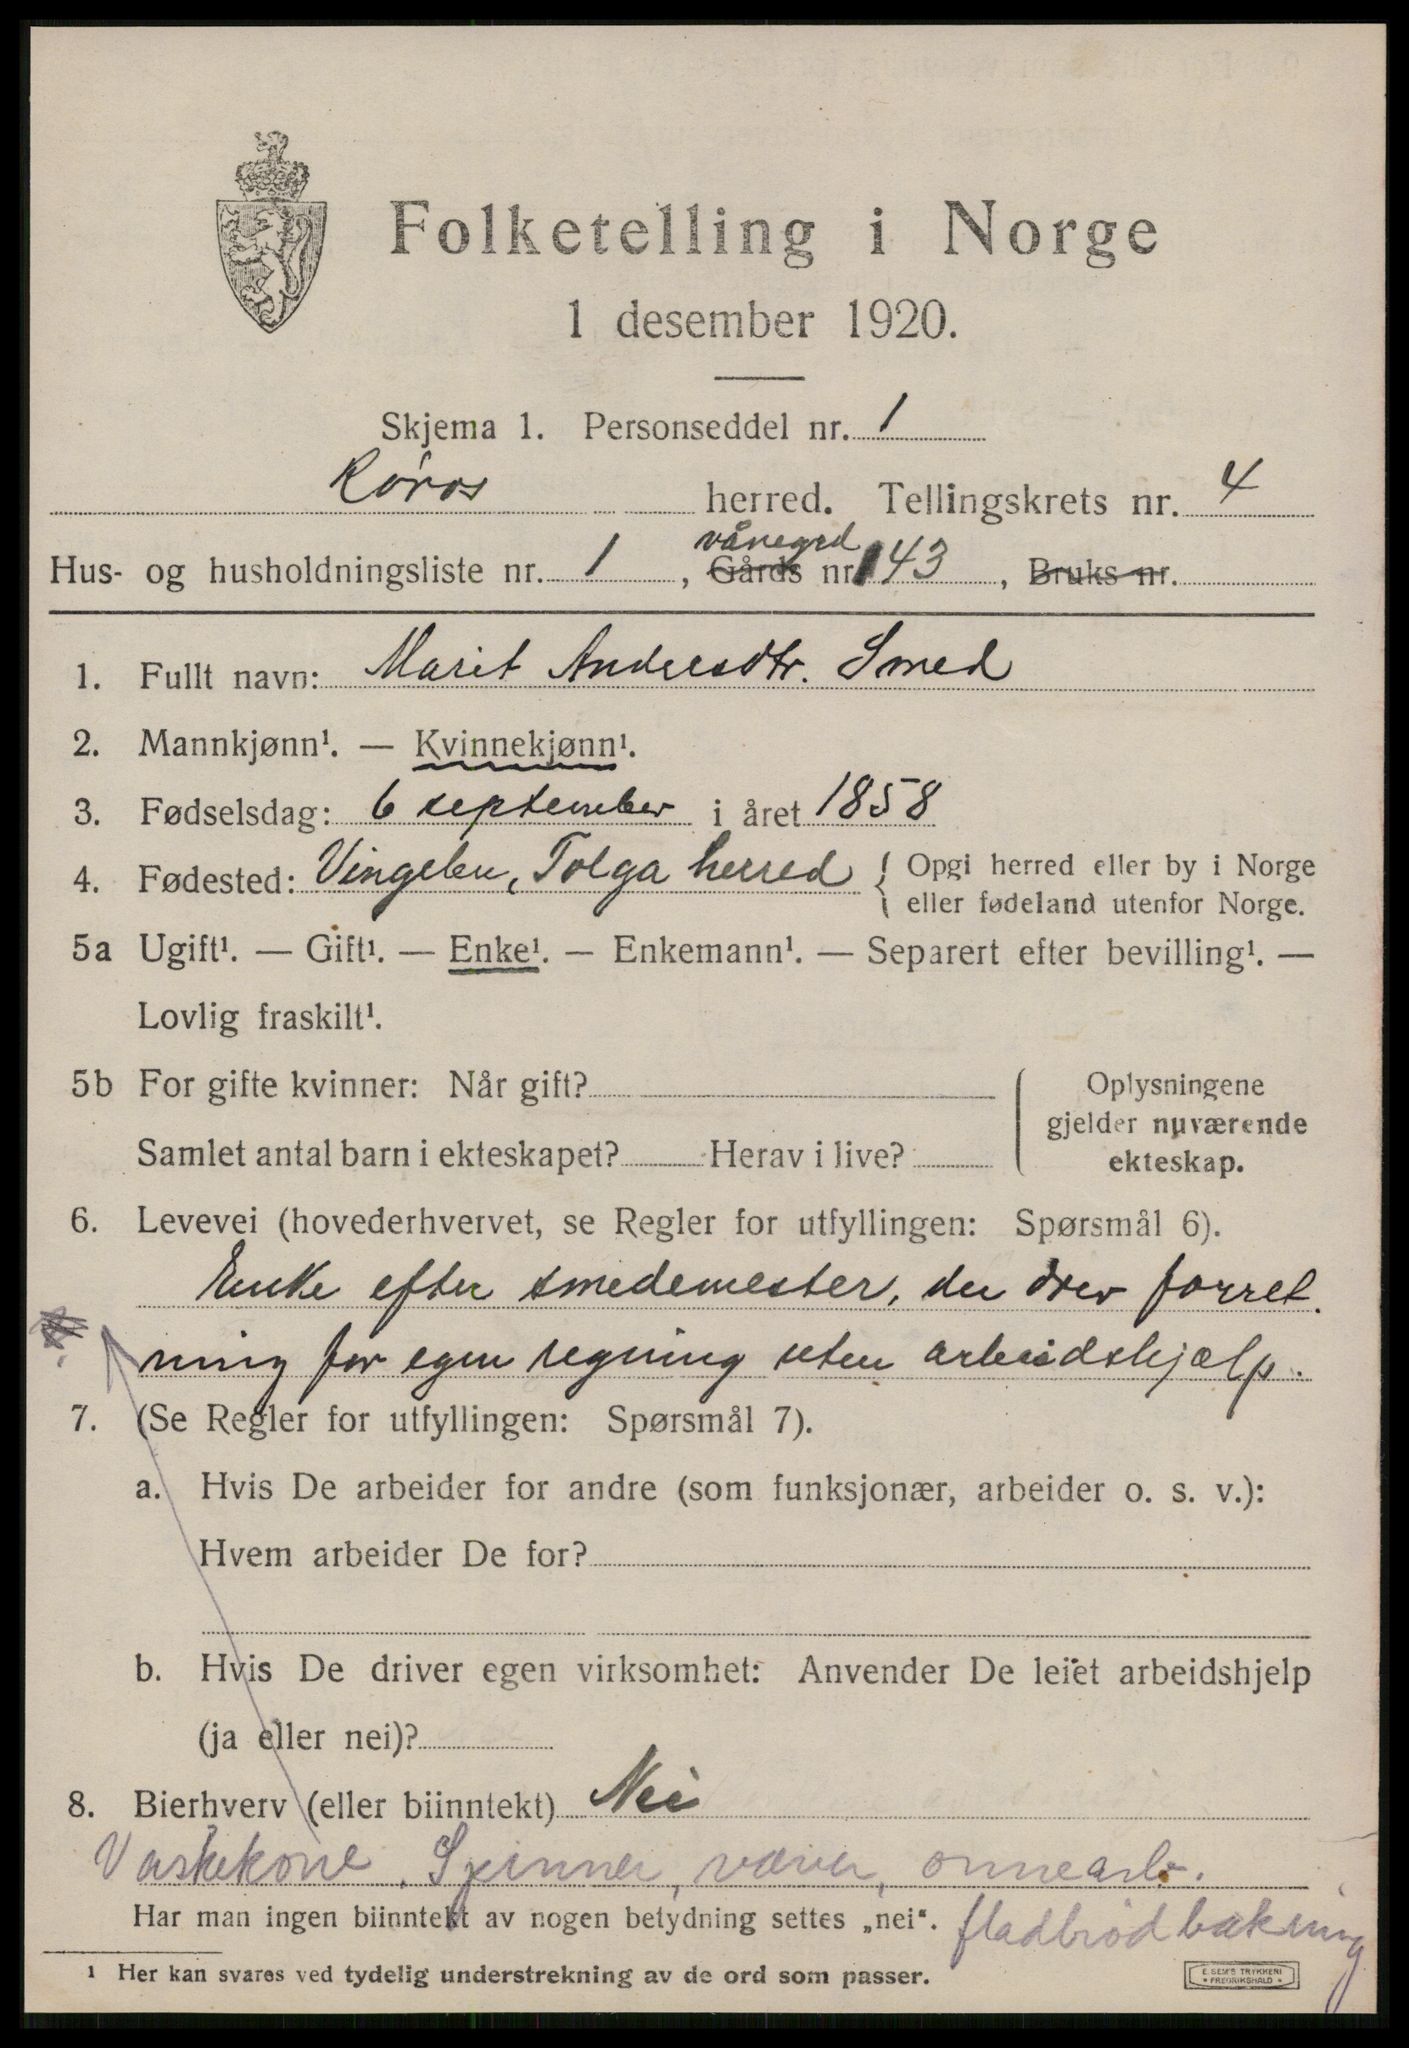 Folketelling i Norge
1 desember 1920.
Skjema 1. Personseddel nr. 1
Røros herred. Tellingskrets nr. 4
vånegrd
Hus- og husholdningsliste nr. 1, Gårds nr. 143, Bruks nr.
1. Fullt navn: Marit Andersdtr. Smed
2. Mannkjønn¹. — Kvinnekjønn¹.
3. Fødselsdag: 6 september i året 1858
4. Fødested: Vingelen, Tolga herred { Opgi herred eller by i Norge
eller fødeland utenfor Norge.
5a Ugift¹. — Gift¹. — Enke¹. — Enkemann¹. — Separert efter bevilling¹. —
Lovlig fraskilt¹.
5b For gifte kvinner: Når gift? Oplysningene
gjelder nuværende
Samlet antal barn i ekteskapet? Herav i live? ekteskap.
6. Levevei (hovederhvervet, se Regler for utfyllingen: Spørsmål 6).
Enke efter smedemester, der drev forret.
ning for egen regning uten arbeidshjælp.
7. (Se Regler for utfyllingen: Spørsmål 7).
a. Hvis De arbeider for andre (som funksjonær, arbeider o. s. v.):
Hvem arbeider De for?
b. Hvis De driver egen virksomhet: Anvender De leiet arbeidshjelp
(ja eller nei)?
8. Bierhverv (eller biinntekt) Nei
Vaskekone. Spinner, væver, onnearb.
Har man ingen biinntekt av nogen betydning settes „nei“. fladbrødbakning
¹ Her kan svares ved tydelig understrekning av de ord som passer.
E. SEM'S TRYKKERI
• FREDRIKSHALD •